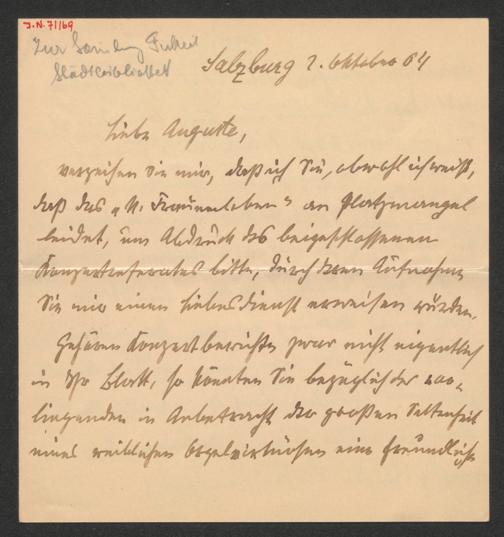 J.N. 71169
Zur Sammlung Fickert
Stadtbibliothek
Salzburg 2. Oktober 04
Liebe Auguste,
verzeihen Sie mir, daß ich Sie, obwohl ich weiß,
daß das „N. Frauenleben" an Platzmangel
leidet, um Abdruck des beigeschlossenen
Konzertreferates bitte, durch dessen Aufnahme
Sie mir einen Liebesdienst erweisen würden.
Gehören Konzertberichte zwar nicht eigentlich
in Ihr Blatt, so könnten Sie bezüglich des vor-
liegenden in Anbetracht der großen Seltenheit
eines weiblichen Orgelvirtuosen eine freundliche